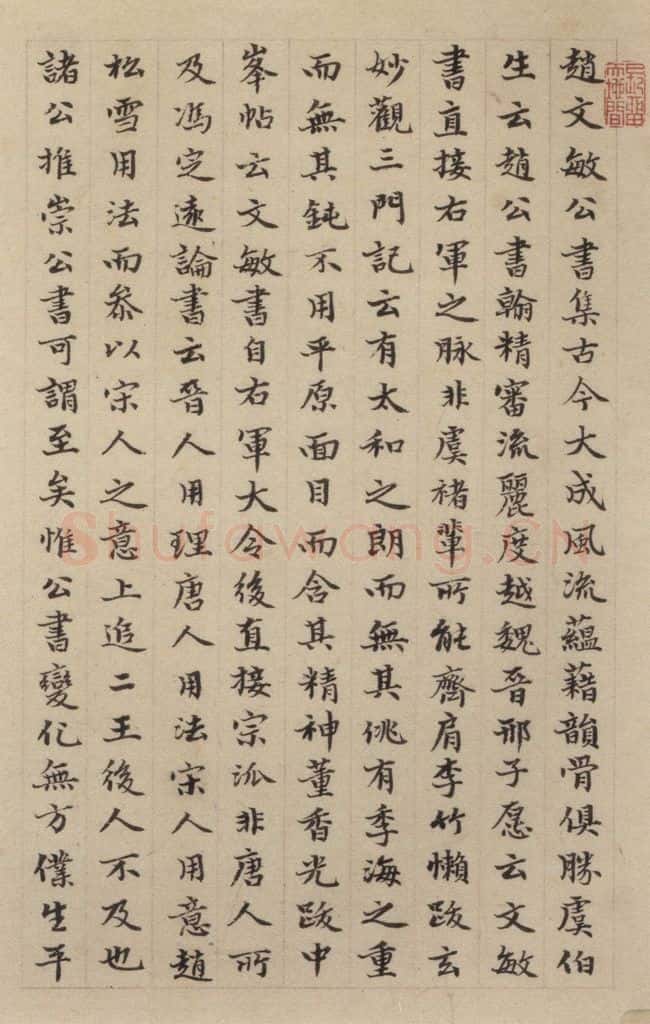 趙文敏公書集古今大成風流蘊藉韻骨俱勝虞伯
生云趙公書翰精審流麗度越魏晉邢子愿云文敏
書直接右軍之脉非虞褚輩所能齊肩李竹懶跋玄
妙觀三門記云有太和之朗而無其佻有季海之重
而無其鈍不用平原面目而含其精神董香光跋中
峯帖云文敏書自右軍大令後直接宗派非唐人所
及馮定遠論書云晉人用理唐人用法宋人用意趙
松雪用法而叅以宋人之意上追二王後人不及也
諸公推崇公書可謂至矣惟公書變化無方僕生平
Shufawang.cn